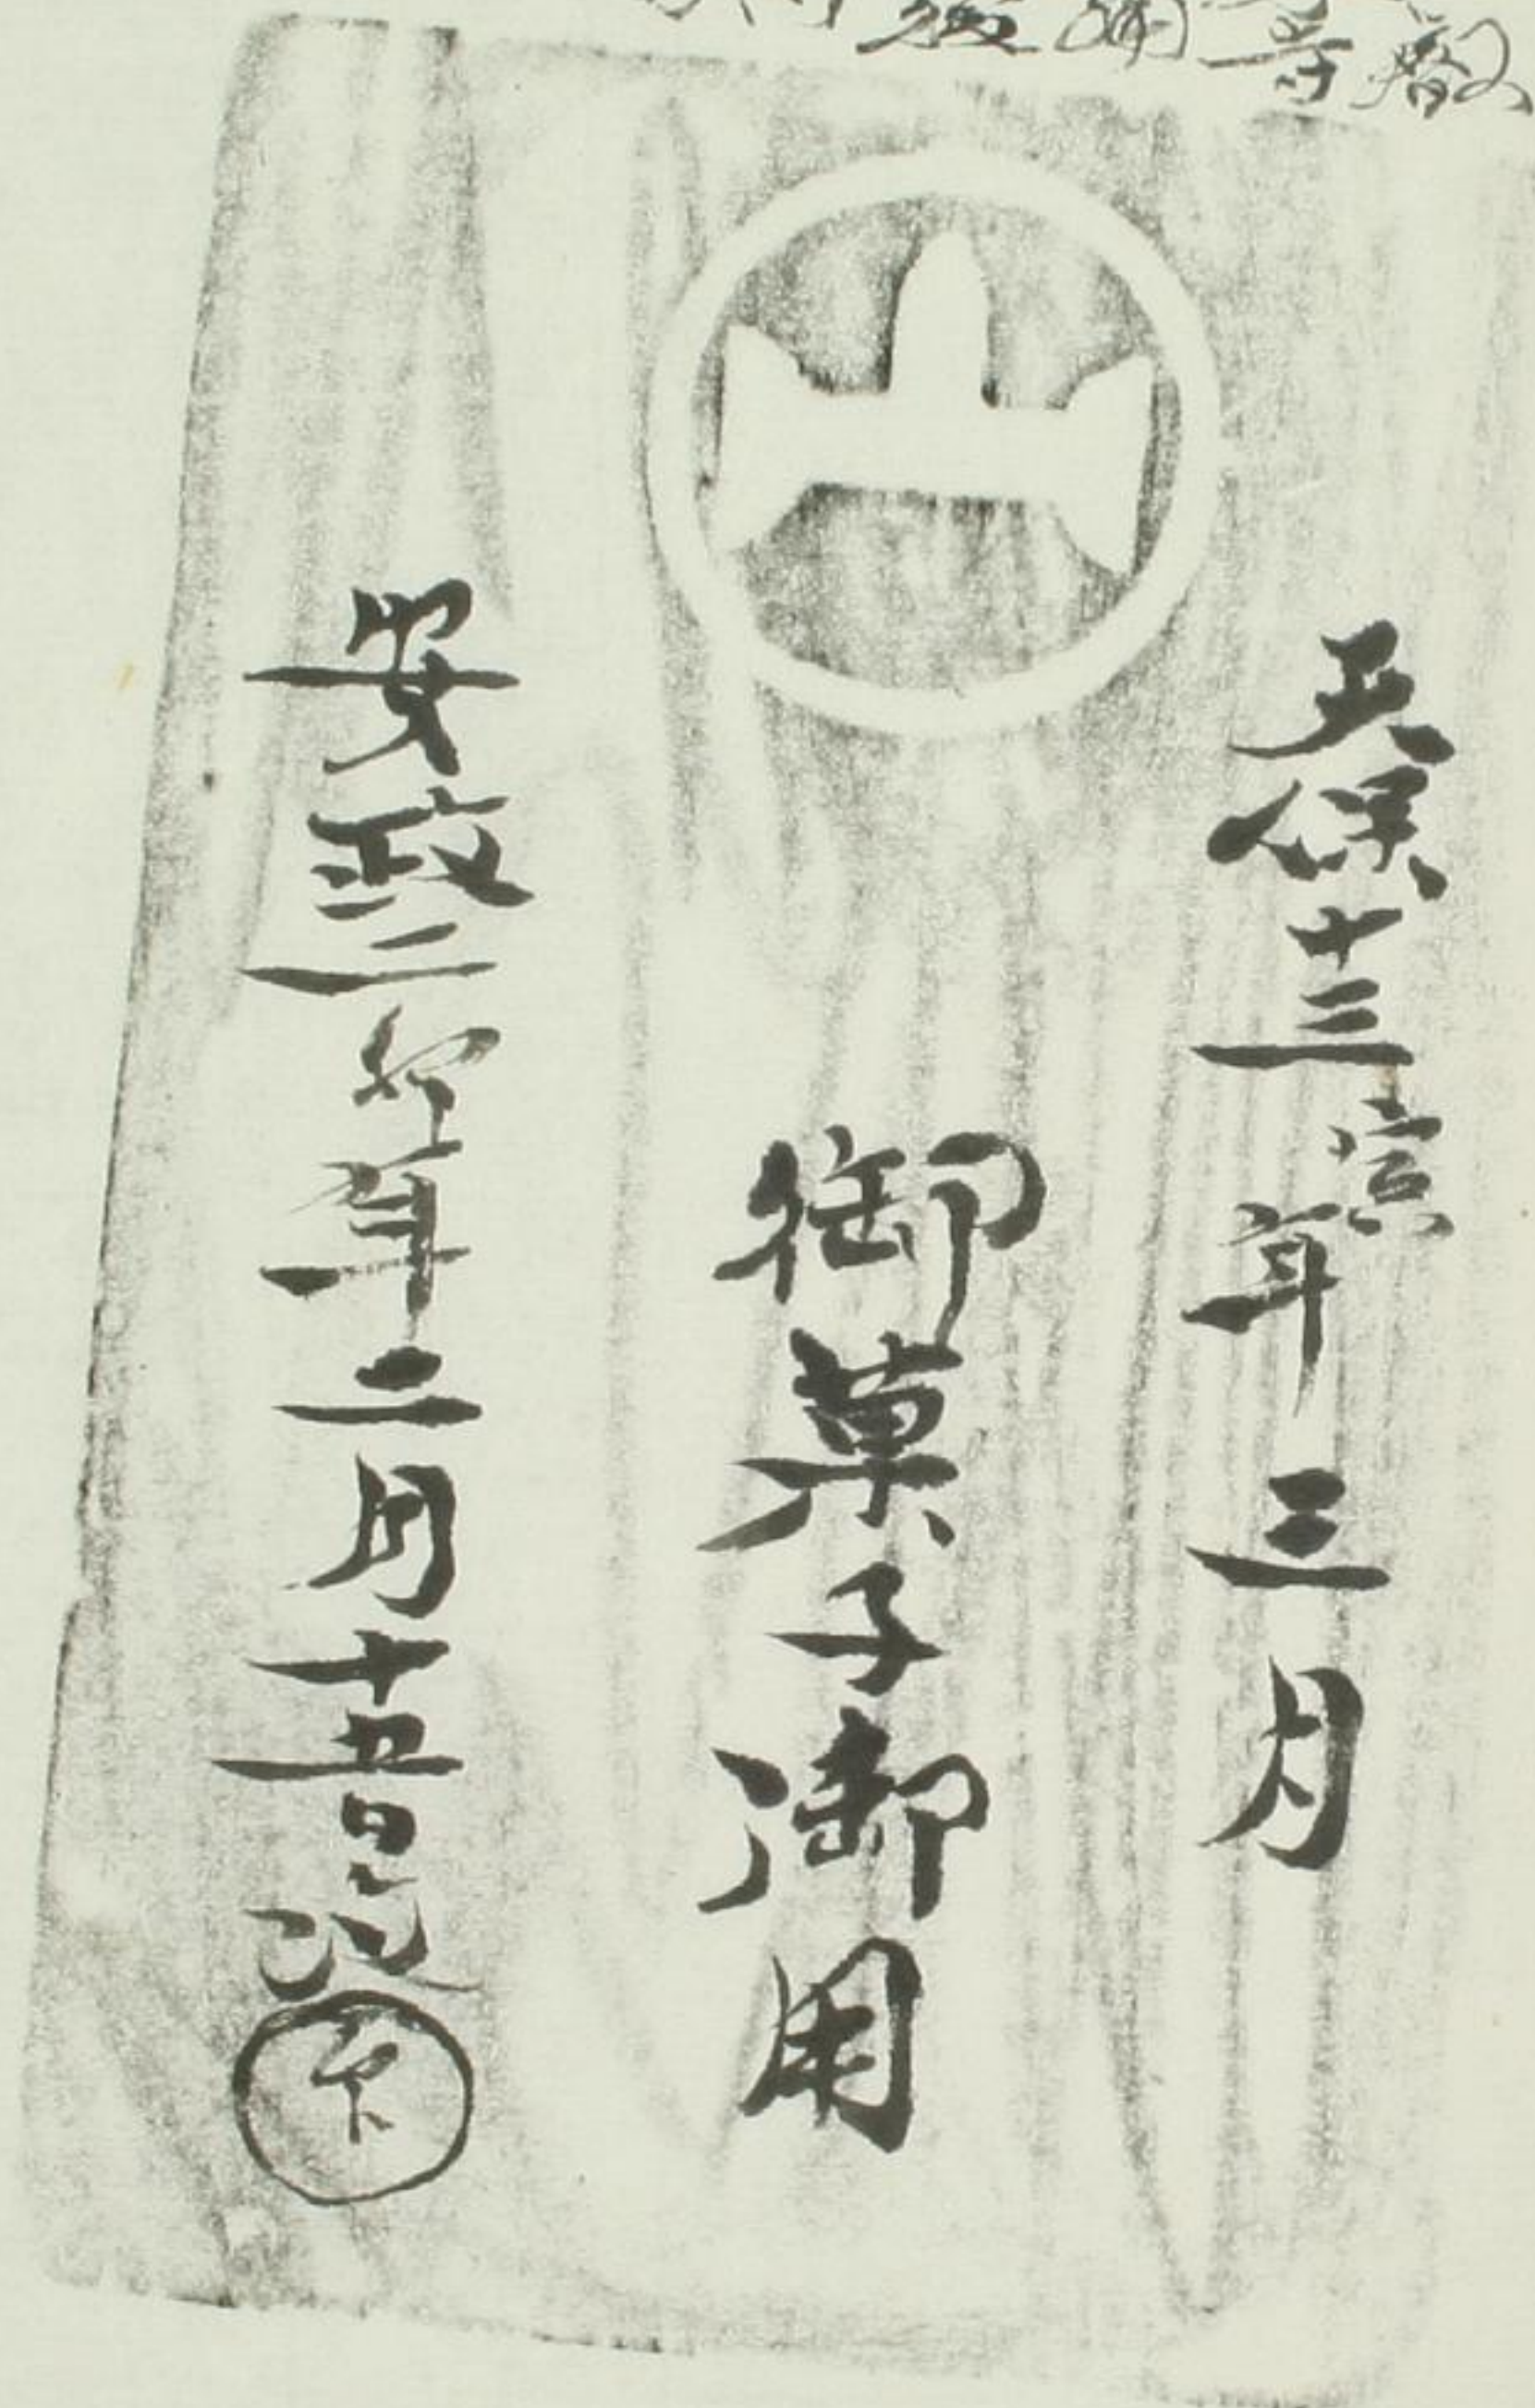 天保十三寅年三月
山
御菓子御用
安政二卯年二月十五日迄